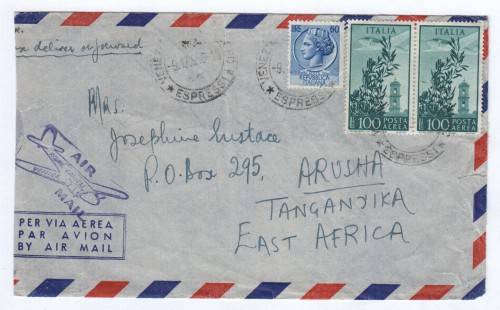 deliver or forward
60
REPUBBLICA
ITALIANA
ITALIA
ITALIA
LIRE 100 POSTA AEREA
LIRE 100 POSTA AEREA
ESPRESSI
ESPRESSI
ESPRESSI
Mrs.
Josephine Eustace
P.O. Box 295, ARUSHA
TANGANJIKA
EAST AFRICA
AIR
MAIL
PER VIA AEREA
PAR AVION
BY AIR MAIL